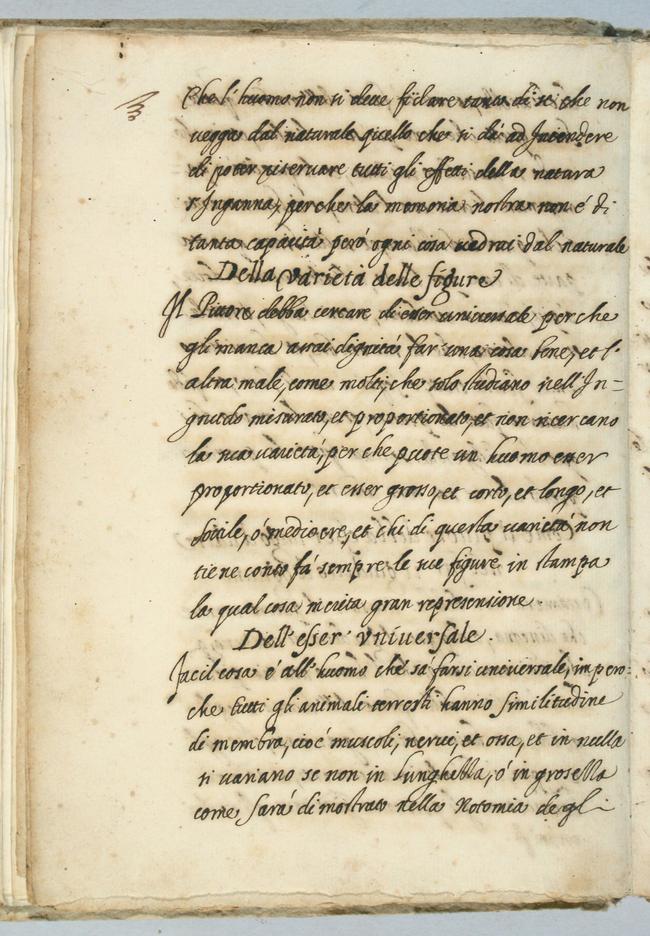 Che l'huomo non si deue fidare tanto di se che non
uegga dal naturale quello che si dà ad Intendere
di poter riseruare tutti gli effetti della natura
s'Inganna, perche la memoria nostra non é di
tanta capacità però ogni cosa uedrai dal naturale
Della varietà delle figure
Il Pittore debba cercare di esser uniuersale perche
gli manca assai dignità far una cosa bene, et l'
altra male, come molti, che solo studiano nell'In=
gnudo misurato, et proportionato, et non ricercano
la sua uarietà, per che puote un huomo esser
proportionato, et esser grosso, et corto, et longo, et
sottile, o' mediocre, et chi di questa uarietà non
tiene conto fà sempre le sue figure in stampa
la qual cosa merita gran reprensione.
Dell'esser vniuersale.
facil cosa é all'huomo che sa farsi uniuersale, impero=
che tutti gli animali terrestri hanno similitudine
di membra, cioé muscoli, nerui, et ossa, et in nulla
si variano se non in lunghezza, ó in grossezza
come sarà dimostrato nella Notomia de gli